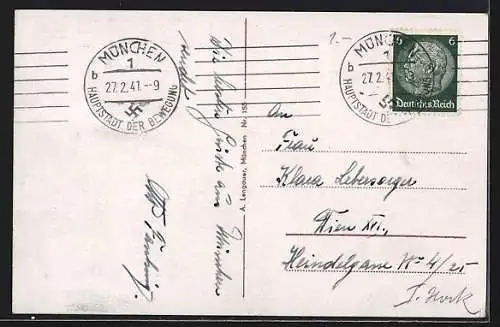 MÜNCHEN
1
b
27.2.41.-9
HAUPTSTADT DER BEWEGUNG
1.-
MÜNCHEN
1
b
27.2.4
HAUPTSTADT DE
6
Deutsches Reich
Die besten Grüße aus München
sendet
A. Lengauer, München Nr. 150
An
Frau
Klara Lebersorger
Wien XVI.,
Heindelgasse No 4/25
I. Stock